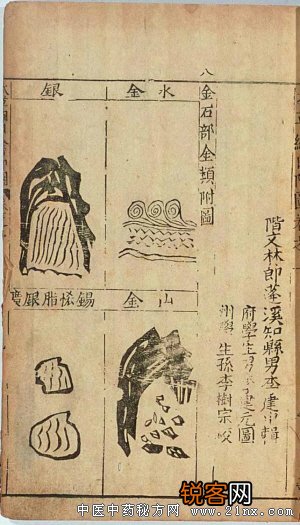 階文林郎蓬溪知縣男李建中輯
府學生男李建元圖
州學生孫李樹宗校
八
金石部金類附圖
水金
銀
山金
錫恡脂銀礦
锐客网
中医中药秘方网
www.21nx.com